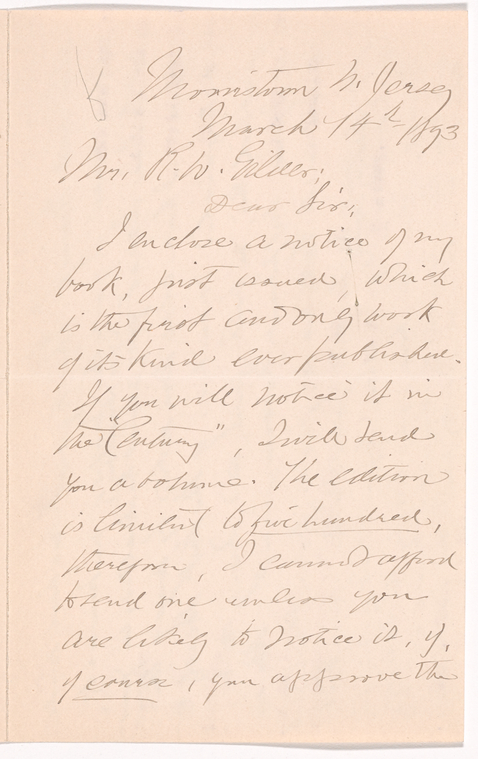 Morristown N. Jersey
March 14th 1893
Mr. R. W. Gilder;
Dear Sir;
I enclose a notice of my
book, just issued, which
is the first and only work
of its kind ever published.
If you will notice it in
the "Century", I will send
you a volume. The edition
is limited to five hundred,
therefore, I cannot afford
to send one unless you
are likely to notice it, if,
of course, you approve the